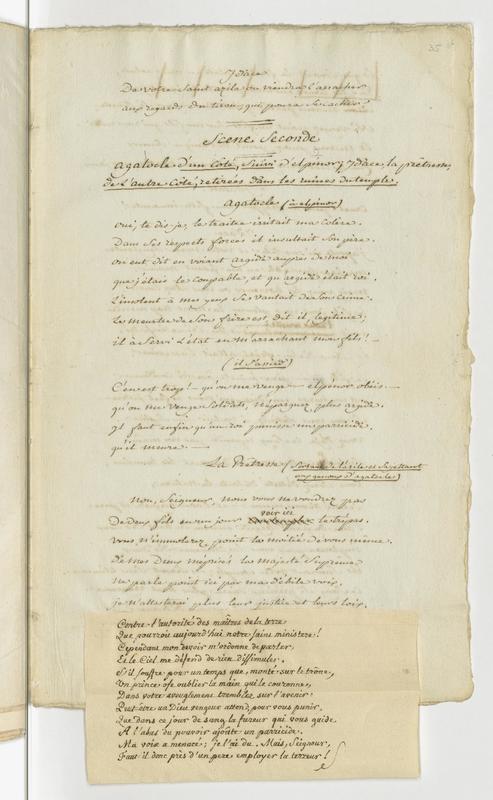 35
Ydace
De votre saint azile on viendra l'arracher
aux regards du tiran, qui poura se cacher?
Scene Seconde
agatocle d'un côté, Suivi d'elpénor; Ydace, la prêtresse,
de l'autre côté, retirées dans les ruines du temple.
agatocle (à elpénor)
oui, te dis-je, le traitre irritait ma colere.
Dans ses respects forcés il insultait son pere.
On eut dit en voiant argide auprès de moi
que j'étais le coupable, et qu'argide était roi.
L'insolent à mes yeux se vantait de son crime.
Le meurtre de son frère est, dit il, légitime;
il a servi L'état en m'arrachant mon fils! —
(il s'assied)
C'en est trop! — qu'on me venge — elpénor obéis —
qu'on me venge soldats, n'épargnez plus argide.
Il faut enfin qu'un roi punisse un parricide.
qu'il meure —
La Prêtresse (sortant de l'azile et se jettant
aux genoux d'agatocle)
Non, Seigneur, non, vous ne voudrez pas
De deux fils en un jour voir ici le trépas.
vous n'immolerez point la moitié de vous même.
De nos Dieux méprisés la majesté suprême
ne parle point ici par ma débile voix.
je n'attesterai plus leur justice et leurs loix.
Contre l'autorité des maîtres de la terre
Que pourrou aujourd'hui notre saint ministere!
Cependant mon devoir m'ordonne de parler,
Et le Ciel me défend de rien dissimuler.
S'il souffre pour un temps que, monté sur le trône,
Un prince ose oublier la main qui le couronne,
Dans votre aveuglement tremblez sur l'avenir.
Peut-être un Dieu vengeur attend, pour vous punir,
Que dans ce jour de sang la fureur qui vous guide,
A l'abus du pouvoir ajoute un parricide.
Ma voix a menacé; je l'ai du. Mais, Seigneur,
Faut il donc près d'un pere employer la terreur!